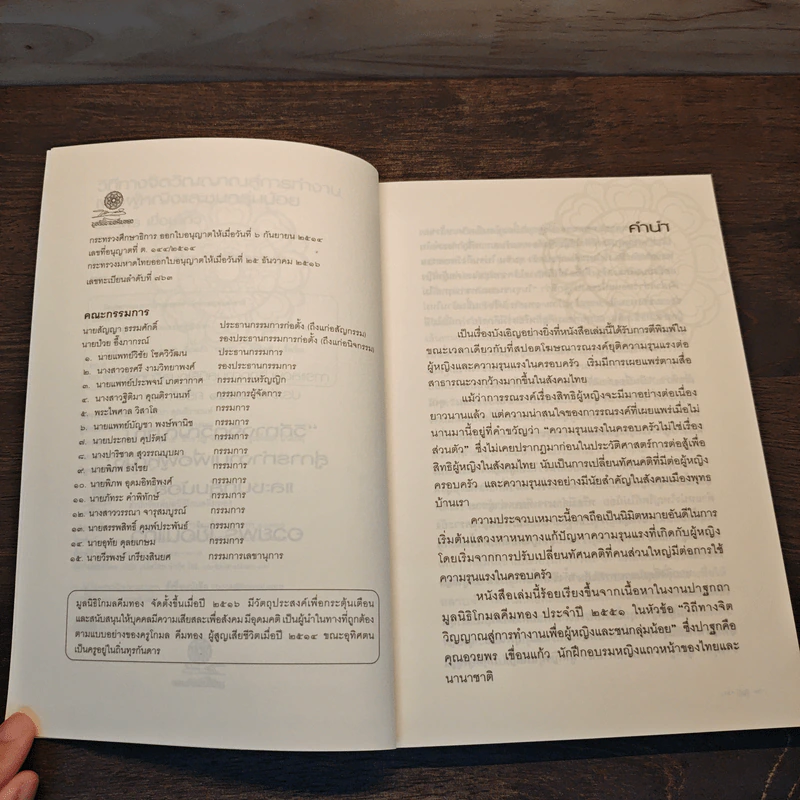 มูลนิธิโกมลคีมทอง
กระทรวงศึกษาธิการ ออกใบอนุญาตให้เมื่อวันที่ ๖ กันยายน ๒๕๑๔
เลขที่อนุญาตที่ ต. ๑๔๔/๒๕๑๔
กระทรวงมหาดไทยออกใบอนุญาตให้เมื่อวันที่ ๒๕ ธันวาคม ๒๕๑๖
เลขทะเบียนลำดับที่ ๗๖๓
คณะกรรมการ
นายสัญญา ธรรมศักดิ์ ประธานกรรมการก่อตั้ง (ถึงแก่อสัญกรรม)
นายป๋วย อึ๊งภากรณ์ รองประธานกรรมการก่อตั้ง (ถึงแก่อนิจกรรม)
๑. นายแพทย์วิชัย โชควิวัฒน ประธานกรรมการ
๒. นางสาวอรศรี งามวิทยาพงศ์ รองประธานกรรมการ
๓. นายแพทย์ประพจน์ เภตรากาศ กรรมการเหรัญญิก
๔. นางสาวฐิติมา คุณติรานนท์ กรรมการผู้จัดการ
๕. พระไพศาล วิสาโล กรรมการ
๖. นายแพทย์บัญชา พงษ์พานิช กรรมการ
๗. นายประกอบ คุปรัตน์ กรรมการ
๘. นางปาริชาด สุวรรณบุบผา กรรมการ
๙. นายพิภพ ธงไชย กรรมการ
๑๐. นายพิภพ อุดมอิทธิพงศ์ กรรมการ
๑๑. นายภัทระ คำพิทักษ์ กรรมการ
๑๒. นางสาววรรณา จารุสมบูรณ์ กรรมการ
๑๓. นายสรรพสิทธิ์ คุมพ์ประพันธ์ กรรมการ
๑๔. นายอุทัย ดุลยเกษม กรรมการ
๑๕. นายวีรพงษ์ เกรียงสินยศ กรรมการเลขานุการ
มูลนิธิโกมลคีมทอง จัดตั้งขึ้นเมื่อปี ๒๕๑๖ มีวัตถุประสงค์เพื่อกระตุ้นเตือน
และสนับสนุนให้บุคคลมีความเสียสละเพื่อสังคม มีอุดมคติ เป็นผู้นำในทางที่ถูกต้อง
ตามแบบอย่างของครูโกมล คีมทอง ผู้สูญเสียชีวิตเมื่อปี ๒๕๑๔ ขณะอุทิศตน
เป็นครูอยู่ในถิ่นทุรกันดาร
คำนำ
เป็นเรื่องบังเอิญอย่างยิ่งที่หนังสือเล่มนี้ได้รับการตีพิมพ์ใน
ขณะเวลาเดียวกับที่สปอตโฆษณารณรงค์ยุติความรุนแรงต่อ
ผู้หญิงและความรุนแรงในครอบครัว เริ่มมีการเผยแพร่ตามสื่อ
สาธารณะวงกว้างมากขึ้นในสังคมไทย
แม้ว่าการรณรงค์เรื่องสิทธิผู้หญิงจะมีมาอย่างต่อเนื่อง
ยาวนานแล้ว แต่ความน่าสนใจของการรณรงค์ที่เผยแพร่เมื่อไม่
นานมานี้อยู่ที่คำขวัญว่า “ความรุนแรงในครอบครัวไม่ใช่เรื่อง
ส่วนตัว” ซึ่งไม่เคยปรากฏมาก่อนในประวัติศาสตร์การต่อสู้เพื่อ
สิทธิผู้หญิงในสังคมไทย นับเป็นการเปลี่ยนทัศนคติที่มีต่อผู้หญิง
ครอบครัว และความรุนแรงอย่างมีนัยสำคัญในสังคมเมืองพุทธ
บ้านเรา
ความประจวบเหมาะนี้อาจถือเป็นนิมิตหมายอันดีในการ
เริ่มต้นแสวงหาหนทางแก้ปัญหาความรุนแรงที่เกิดกับผู้หญิง
โดยเริ่มจากการปรับเปลี่ยนทัศนคติที่คนส่วนใหญ่มีต่อการใช้
ความรุนแรงในครอบครัว
หนังสือเล่มนี้ร้อยเรียงขึ้นจากเนื้อหาในงานปาฐกถา
มูลนิธิโกมลคีมทอง ประจำปี ๒๕๕๑ ในหัวข้อ “วิถีทางจิต
วิญญาณสู่การทำงานเพื่อผู้หญิงและชนกลุ่มน้อย” ซึ่งปาฐกคือ
คุณอวยพร เขื่อนแก้ว นักฝึกอบรมหญิงแถวหน้าของไทยและ
นานาชาติ